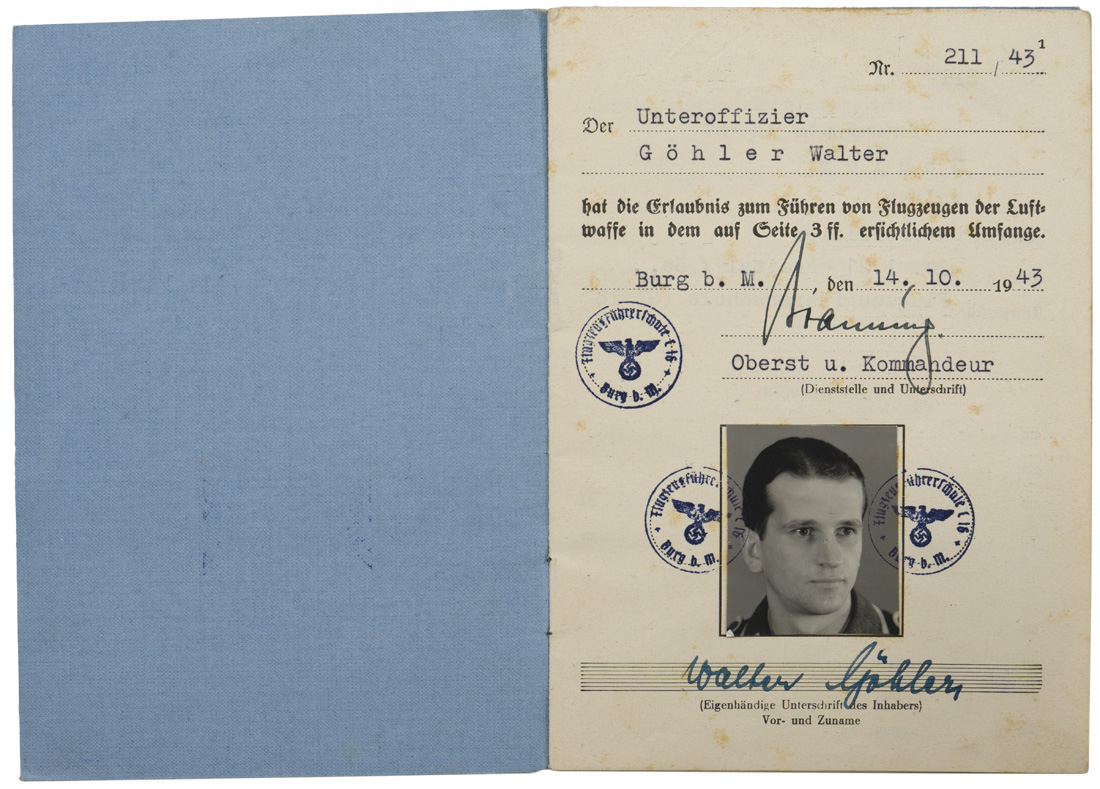 1
Nr. 211 / 43
Der Unteroffizier
Göhler Walter
hat die Erlaubnis zum Führen von Flugzeugen der Luft-
waffe in dem auf Seite 3 ff. ersichtlichem Umfange.
Burg b. M. , den 14. 10. 1943
Oberst u. Kommandeur
(Dienststelle und Unterschrift)
Burg b. M.
Burg b. M.
Walter Göhler
(Eigenhändige Unterschrift des Inhabers)
Vor- und Zuname